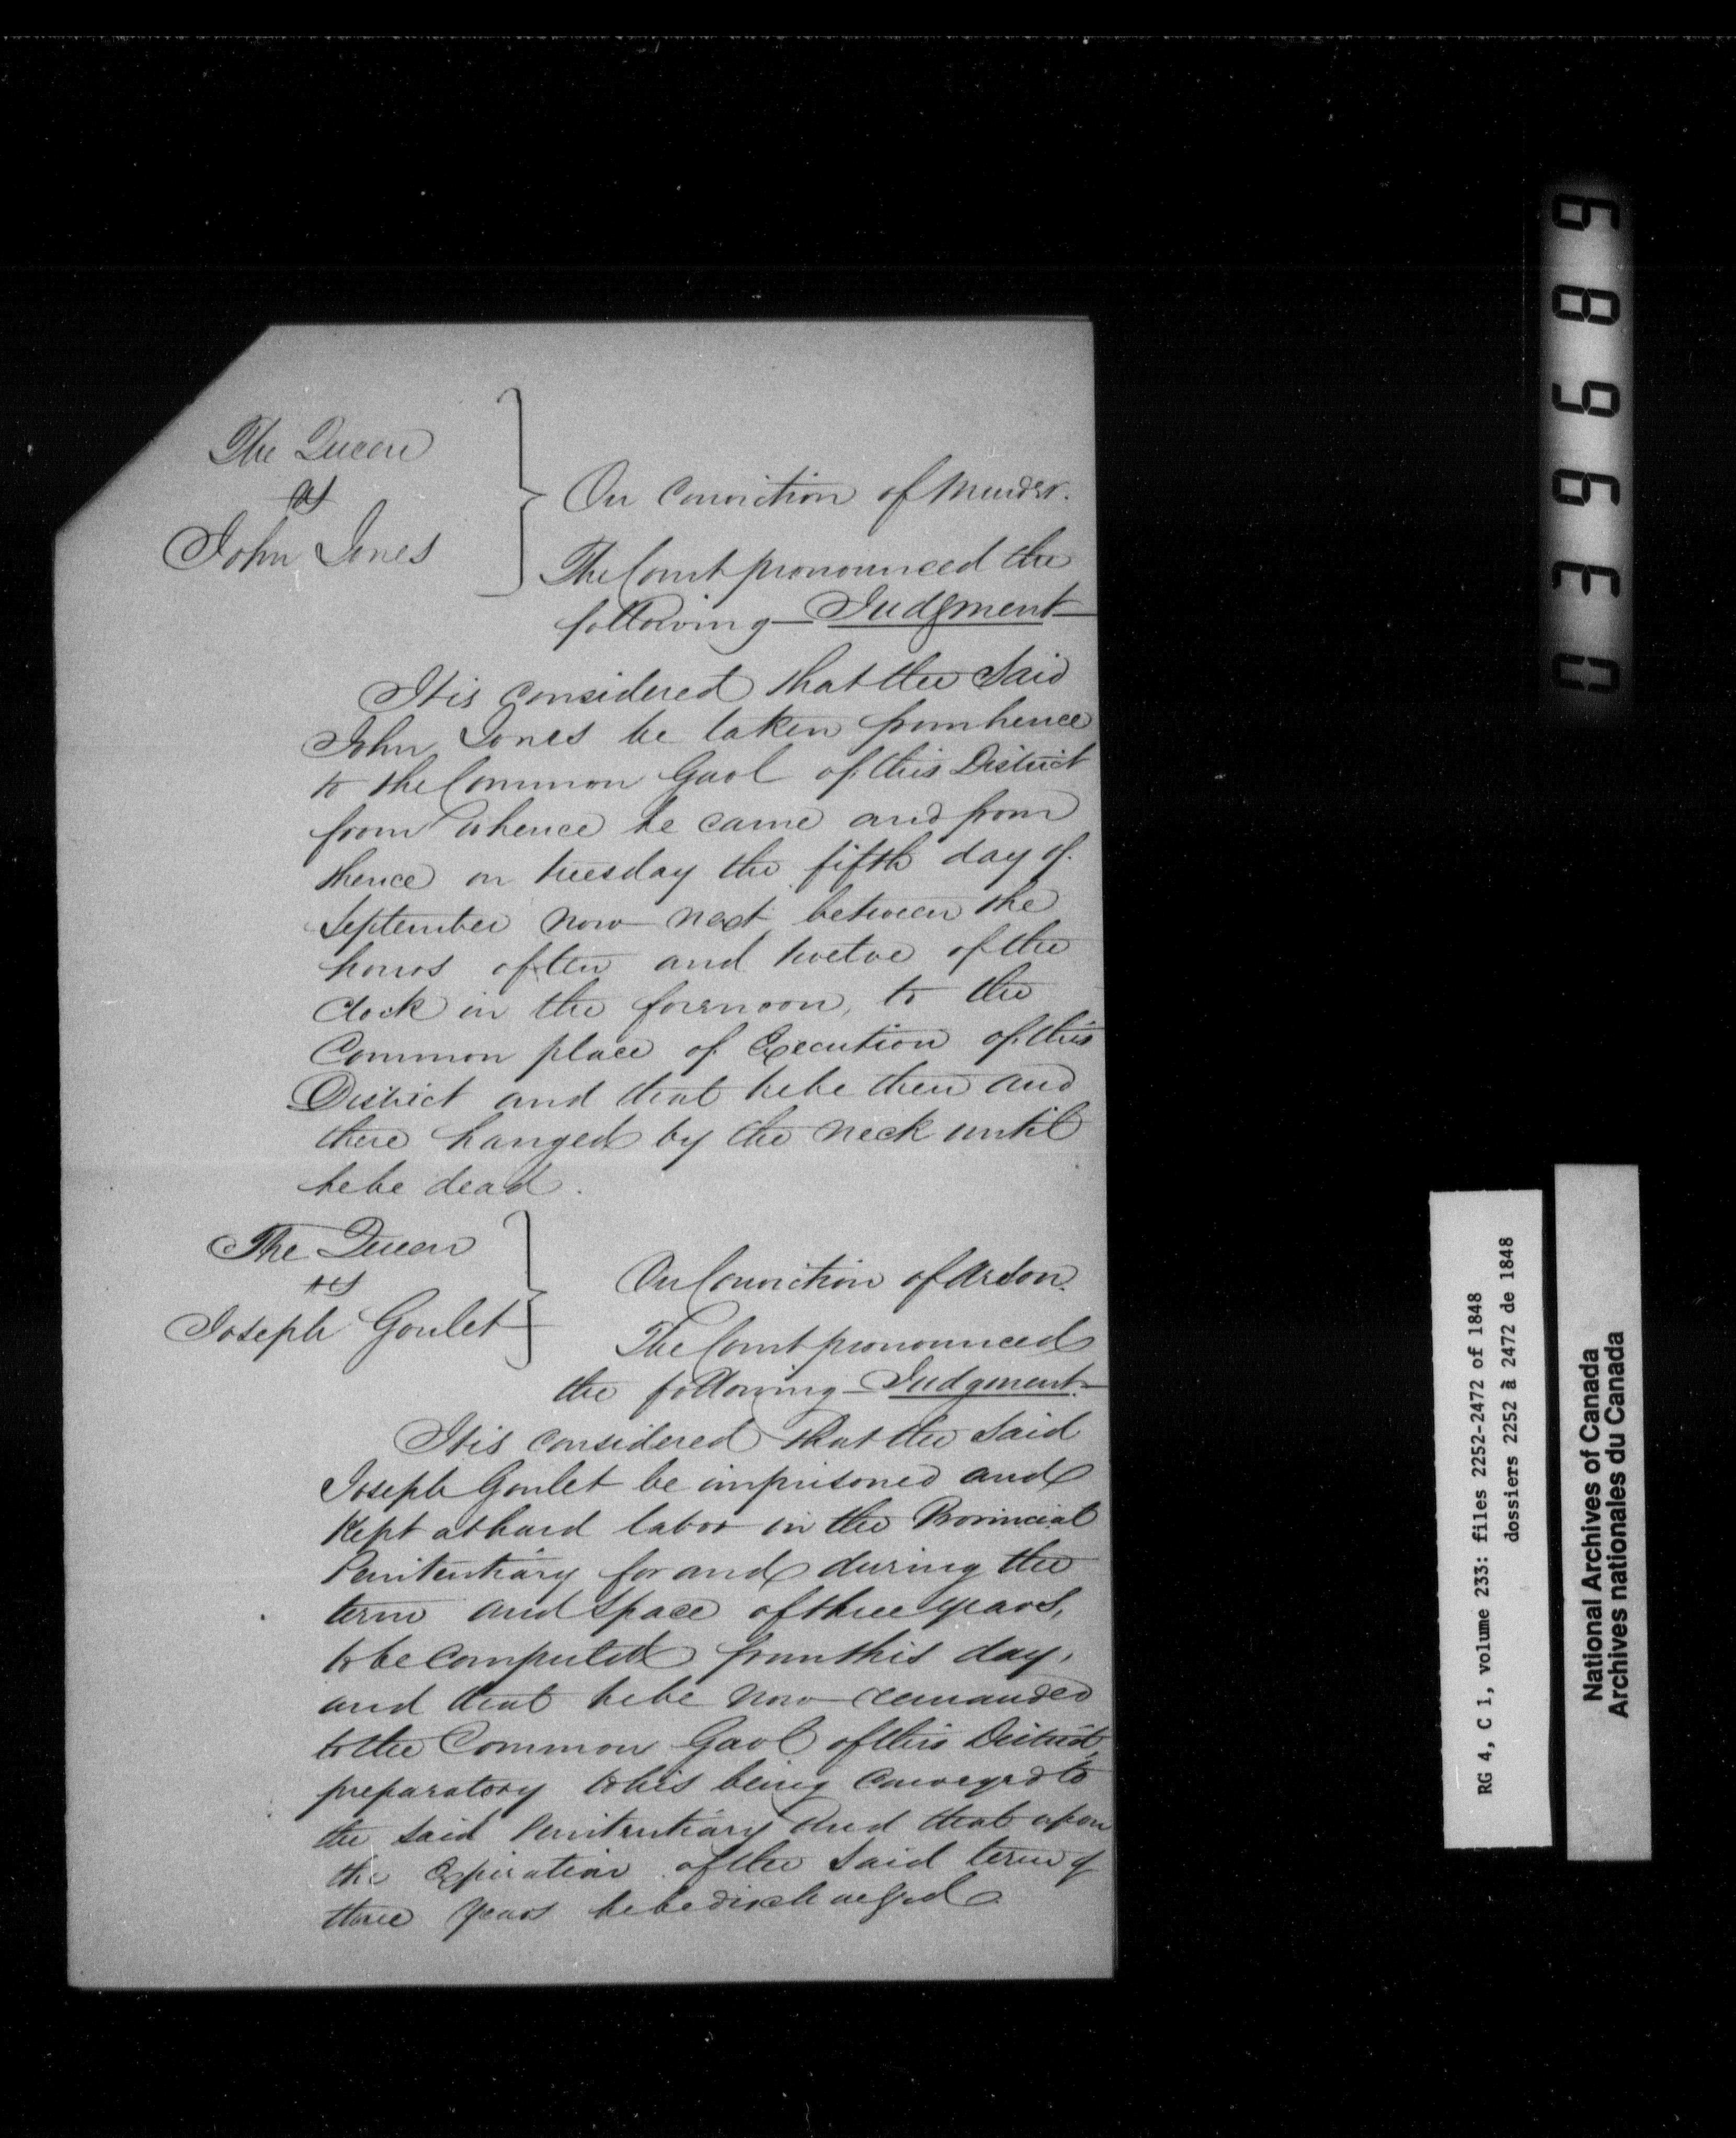 The Queen
vs
John Jones
On Conviction of Murder.
The Court pronounced the
following — Judgment —
It is considered that the Said
John Jones be taken from hence
to the Common Gaol of this District
from whence he came and from
thence on tuesday the fifth day of
September now next between the
hours of ten and twelve of the
Clock in the forenoon, to the
Common place of Execution of this
District and that he be then and
there hanged by the neck until
he be dead.
The Queen
vs
Joseph Goulet
On Conviction of Arson.
The Court pronounced
the following — Judgment. —
It is considered that the Said
Joseph Goulet be imprisoned and
Kept at hard labor in the Provincial
Penitentiary for and during the
term and Space of three years,
to be Computed from this day,
and that he be now remanded
to the Common Gaol of this District,
preparatory to his being Conveyed to
the said Penitentiary and that upon
the Expiration of the said term of
three years he be discharged
039689
RG 4, C 1, volume 233: files 2252-2472 of 1848
dossiers 2252 à 2472 de 1848
National Archives of Canada
Archives nationales du Canada